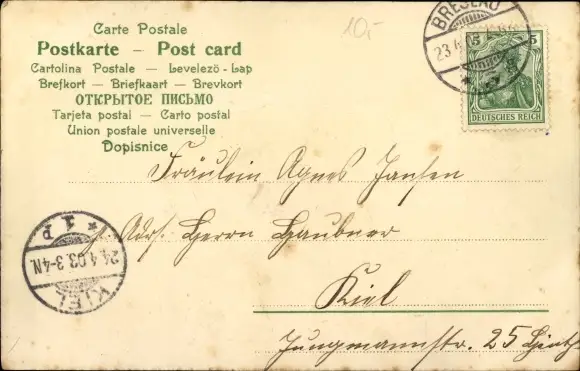 Carte Postale
Postkarte – Post card
Cartolina Postale – Levelezö-Lap
Brefkort – Briefkaart – Brevkort
ОТКРЫТОЕ ПИСЬМО
Tarjeta postal – Carto postal
Union postale universelle
Dopisnice
10,-
BRESLAU
5 5
DEUTSCHES REICH
Fräulein Agnes Jansen
Adrs. Herrn Haubner
Kiel
Jungmannstr. 25
* 1 P
24.4.03.3-4N.
KIEL